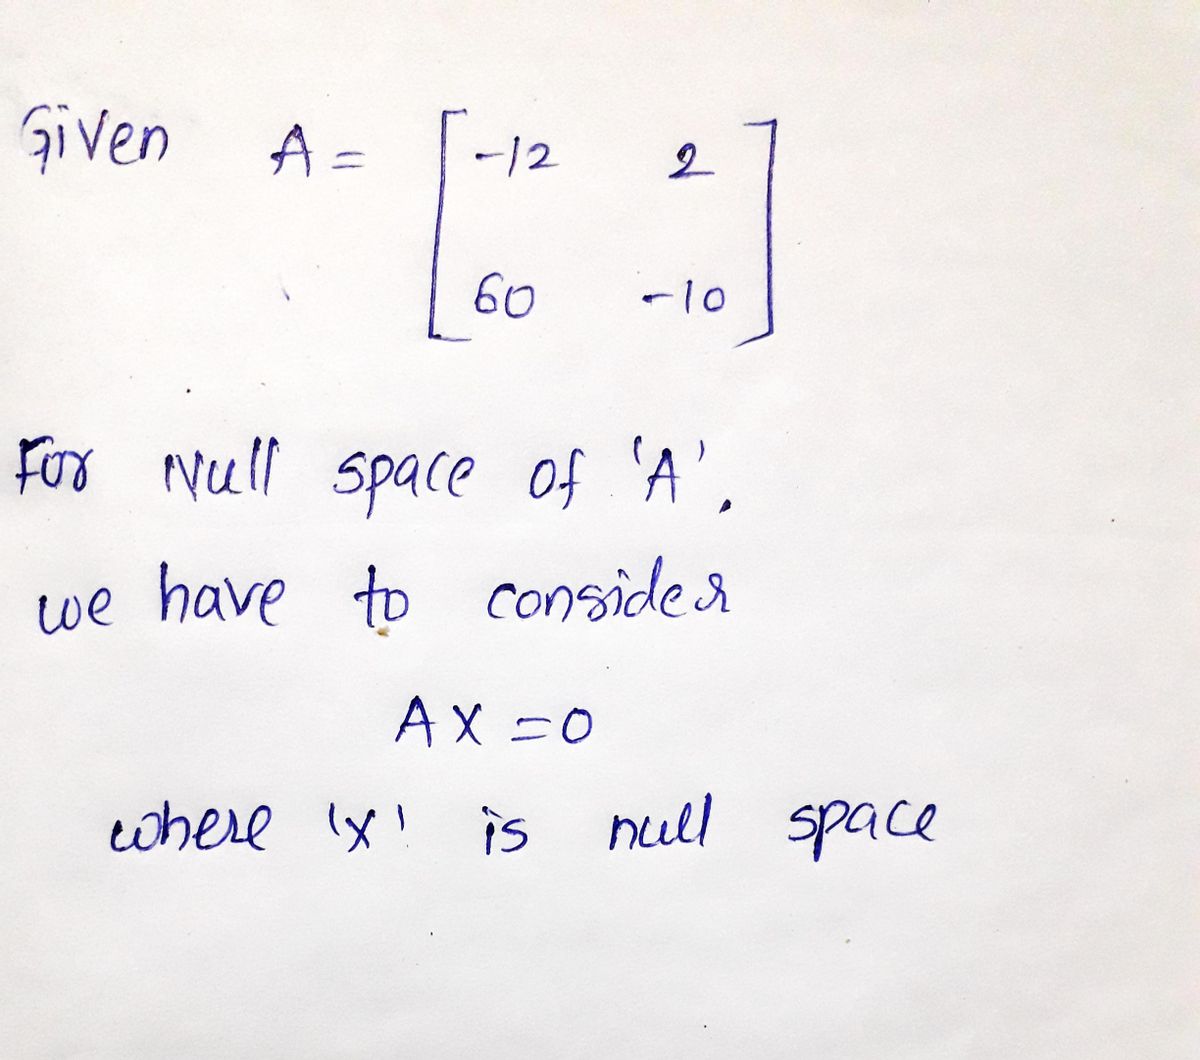 Given A = [ -12 2
60 -10 ]
For Null space of 'A',
we have to consider
AX = 0
where 'x' is null space